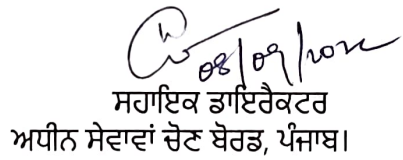 08/09/2022
ਸਹਾਇਕ ਡਾਇਰੈਕਟਰ
ਅਧੀਨ ਸੇਵਾਵਾਂ ਚੋਣ ਬੋਰਡ, ਪੰਜਾਬ।